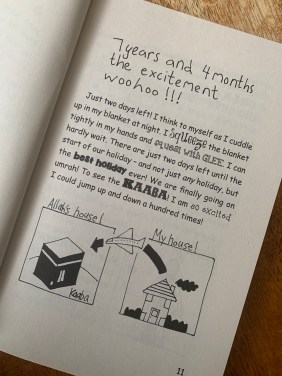 7 years and 4 months
the excitement
woohoo !!!
Just two days left! I think to myself as I cuddle
up in my blanket at night. I squeeze the blanket
tightly in my hands and squeal with GLEE. I can
hardly wait. There are just two days left until the
start of our holiday - and not just any holiday, but
the best holiday ever! We are finally going on
umrah! To see the KAABA! I am so excited
I could jump up and down a hundred times!
Allah's house!
My house!
Kaaba
11